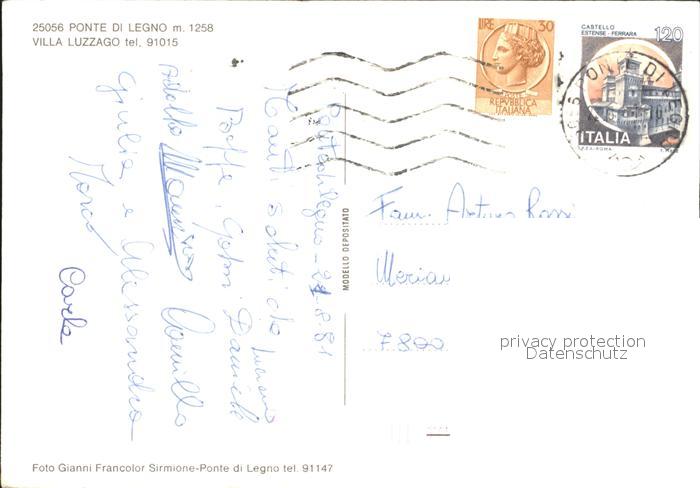 25056 PONTE DI LEGNO m. 1258
VILLA LUZZAGO tel. 91015
LIRE 30
POSTE
REPUBBLICA
ITALIANA
CASTELLO
ESTENSE - FERRARA
120
ITALIA
PONTE DI LEGNO
Pontedilegno - 21.8.81
Tanti saluti da Luciano
Daniele
Camillo
Giulia e Alessandra
Marco
Carla
MODELLO DEPOSITATO
Fam.
7800
privacy protection
Datenschutz
Foto Gianni Francolor Sirmione-Ponte di Legno tel. 91147